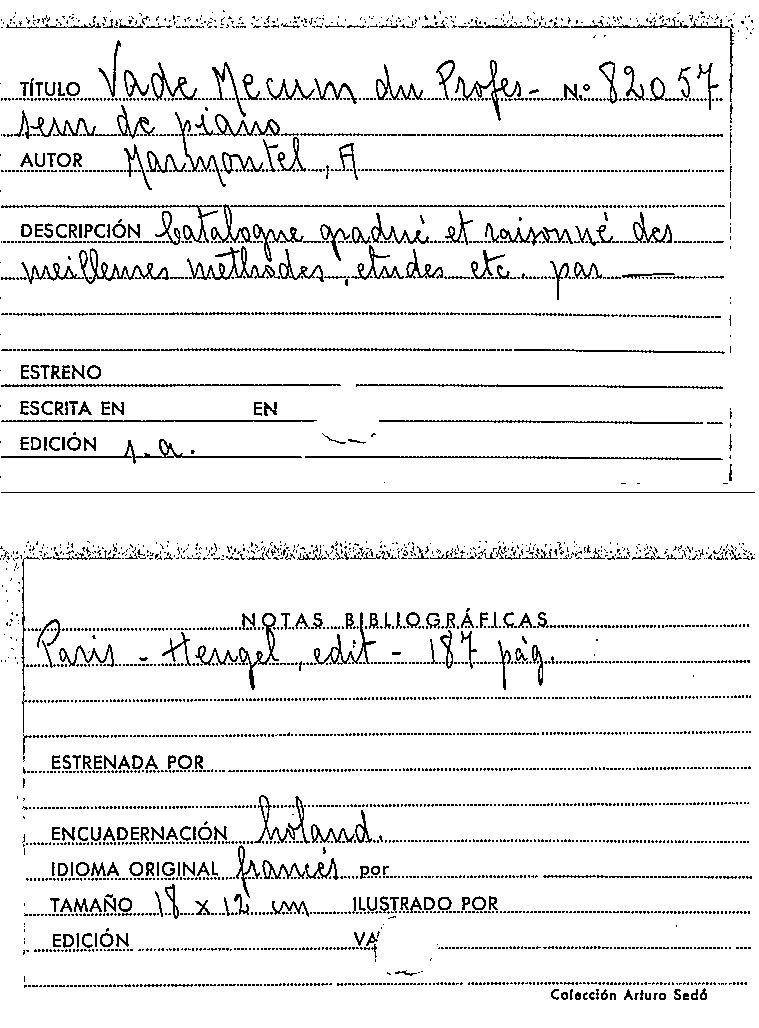 TÍTULO Vade Mecum du Profes- N.º 82057
seur de piano
AUTOR Marmontel, A
DESCRIPCIÓN Catalogue gradué et raisonné des
meilleures méthodes, etudes etc. par —
ESTRENO
ESCRITA EN EN
EDICIÓN s.a.
NOTAS BIBLIOGRÁFICAS
Paris - Heugel, edit - 187 pág.
ESTRENADA POR
ENCUADERNACIÓN holand.
IDIOMA ORIGINAL francés por
TAMAÑO 18 x 12 cm ILUSTRADO POR
EDICIÓN VA
Colección Arturo Sedó